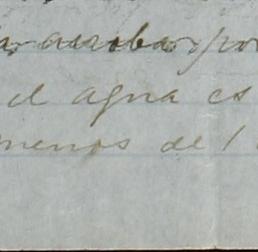 arrobas por
el agua es
menos de 1